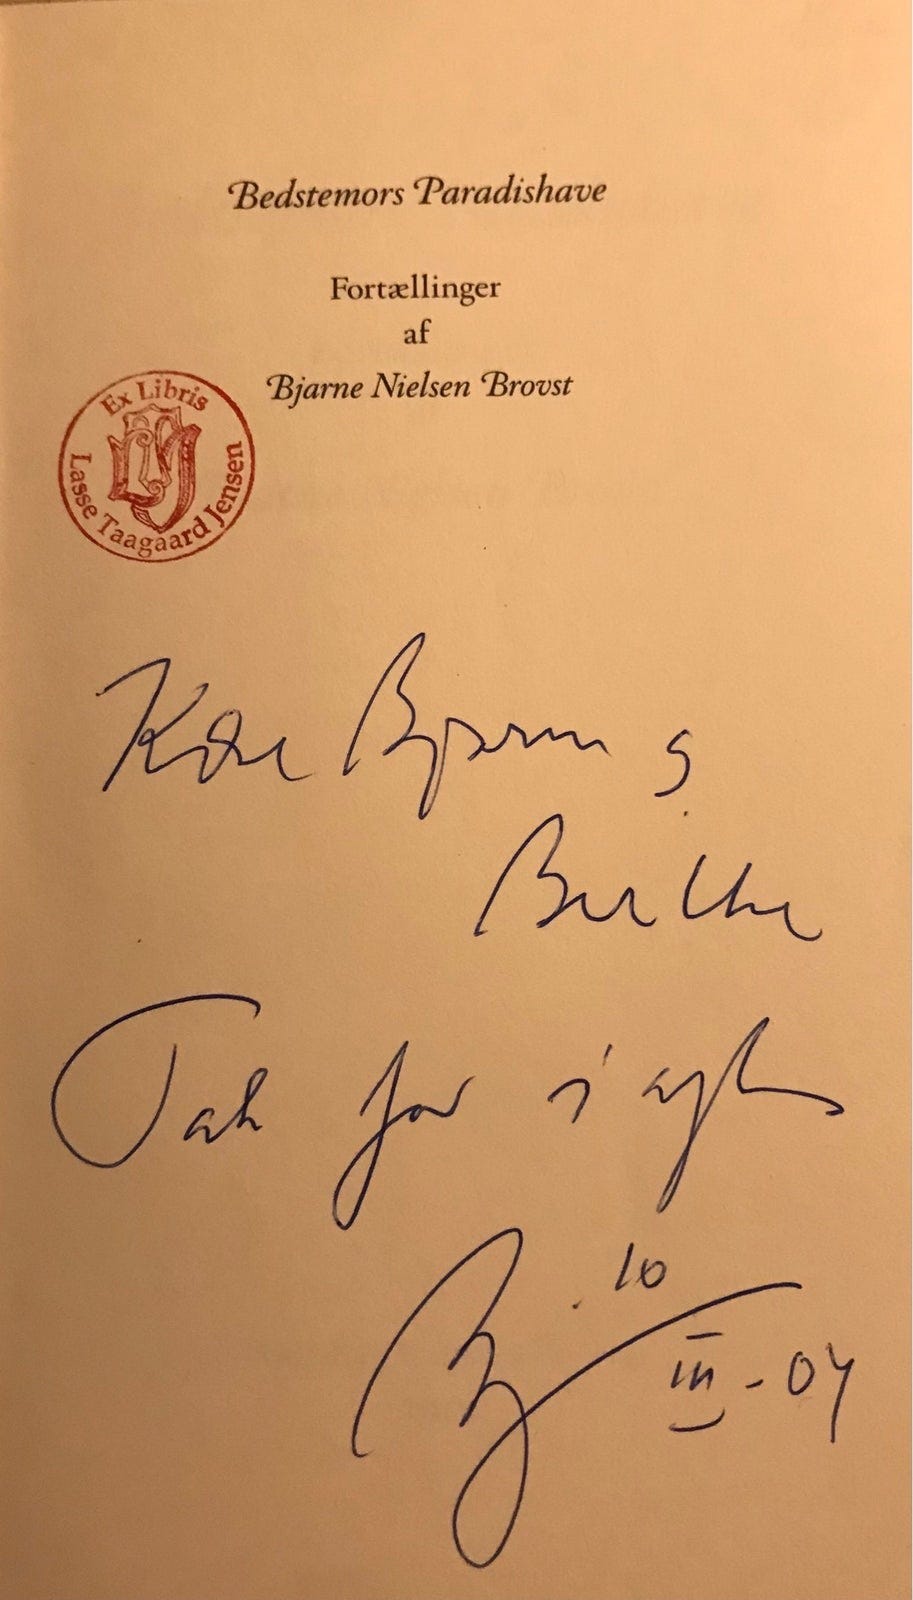 Bedstemors Paradishave
Fortællinger
af
Bjarne Nielsen Brovst
Ex Libris
Lasse Taagaard Jensen
Kære Bjarne
Birthe
Tak for i aften
10
III - 04